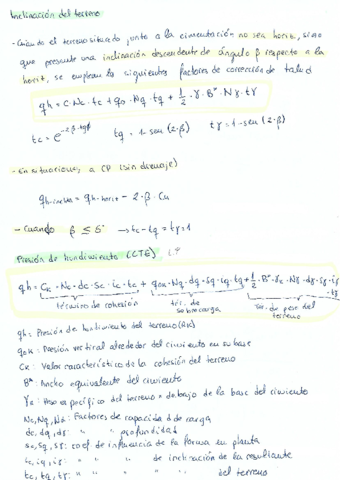 Inclinación del terreno
- Cuando el terreno situado junto a la cimentación no sea horiz, sino
que presente una inclinación descendente de ángulo β respecto a la
horiz, se emplean los siguientes factores de corrección de talud
qh = c·Nc·tc + q0·Nq·tq + 1/2·γ·B*·Nγ·tγ
tc = e^-2·β·tgφ    tq = 1 - sen(2·β)    tγ = 1 - sen(2·β)
- En situaciones a CP (sin drenaje)
qh = qh-horiz - 2·β·Cu
- Cuando β ≤ 5° → tc = tq = tγ = 1
Presión de hundimiento (CTE)
qh = CK·Nc·dc·sc·ic·tc + q0K·Nq·dq·sq·iq·tq + 1/2·B*·γK·Nγ·dγ·sγ·iγ·tγ
término de cohesión    tér. de sobrecarga    tér. de peso del terreno
qh = Presión de hundimiento del terreno (RK)
q0K = Presión vertical alrededor del cimiento en su base
CK = Valor característico de la cohesión del terreno
B* = Ancho equivalente del cimiento
γK = Peso específico del terreno x debajo de la base del cimiento
Nc, Nq, Nγ: Factores de capacidad de carga
dc, dq, dγ: " " profundidad
sc, sq, sγ: coef de influencia de la forma en planta
ic, iq, iγ: " " de inclinación de la resultante
tc, tq, tγ: " " " del terreno